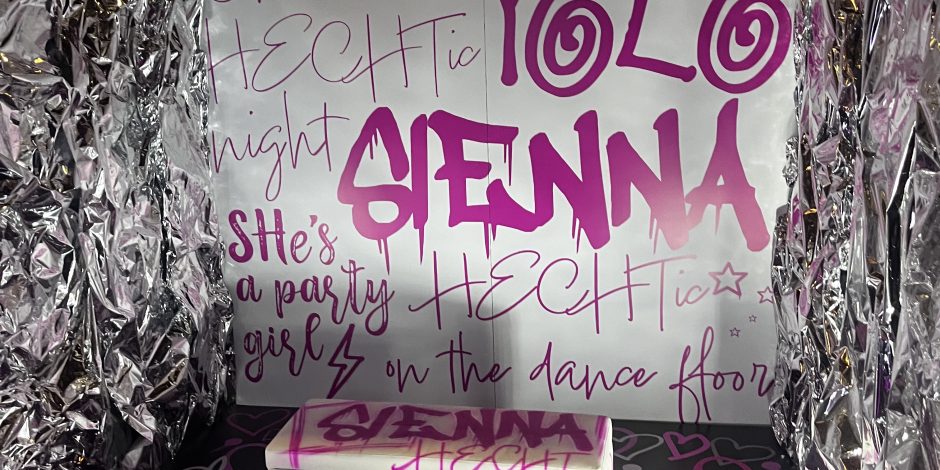 HECHTic
YOLO
night
SIENNA
SHe's
a party
girl
HECHTic
on the dance ffoor
SIENNA
HECHT